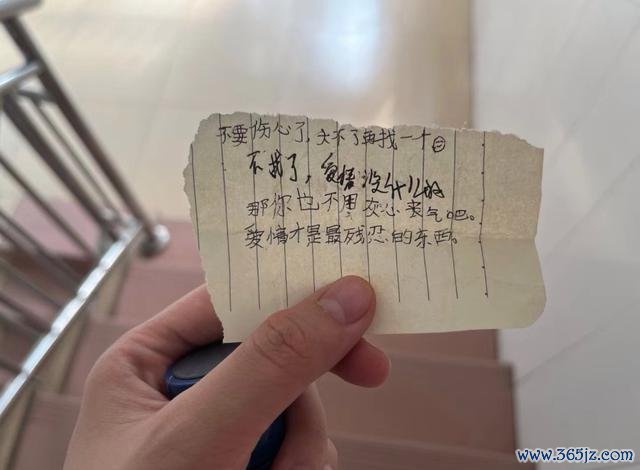 不要伤心了,大不了再找一个☺
不找了,爱情没什么的
那你也不用灰心丧气吧。
爱情才是最残忍的东西。
www.365jz.com